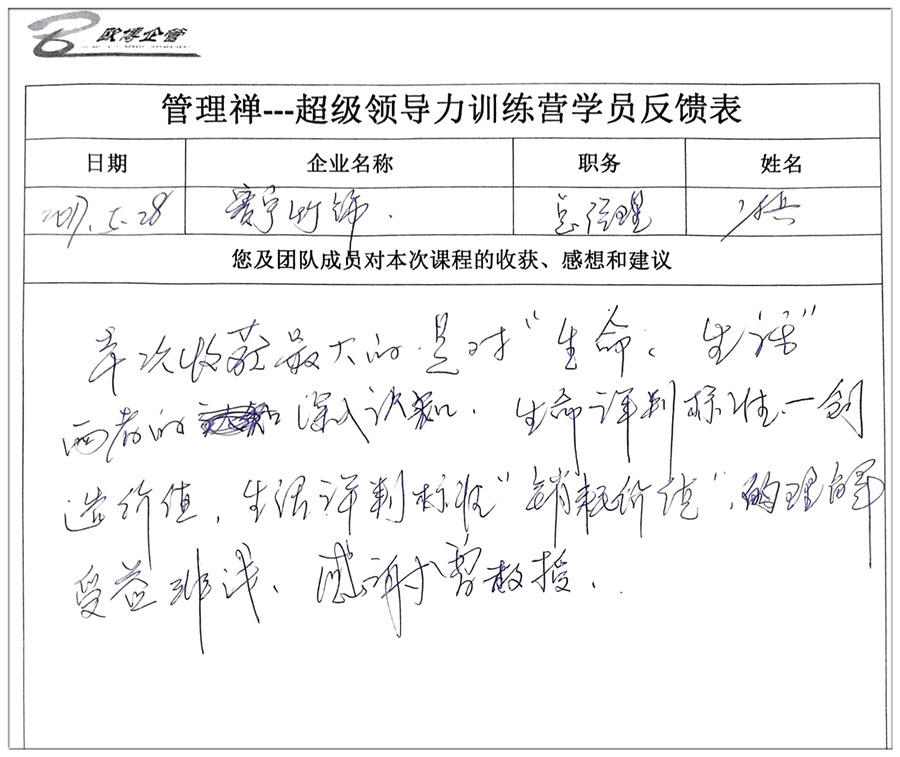 欧博企管
管理禅---超级领导力训练营学员反馈表
日期 企业名称 职务 姓名
2017.5.28 赛宇竹饰. 总经理
您及团队成员对本次课程的收获、感想和建议
本次收获最大的是对“生命、生活”
两者的深入认知. 生命评判标准一创
造价值，生活评判标准“销耗价值”的理解
受益非浅、感谢曾教授.